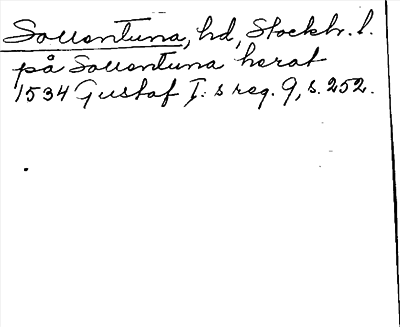 Sollentuna, hd, Stockh. l.
på Sollentuna herat
1534 Gustaf I:s reg. 9, s. 252.